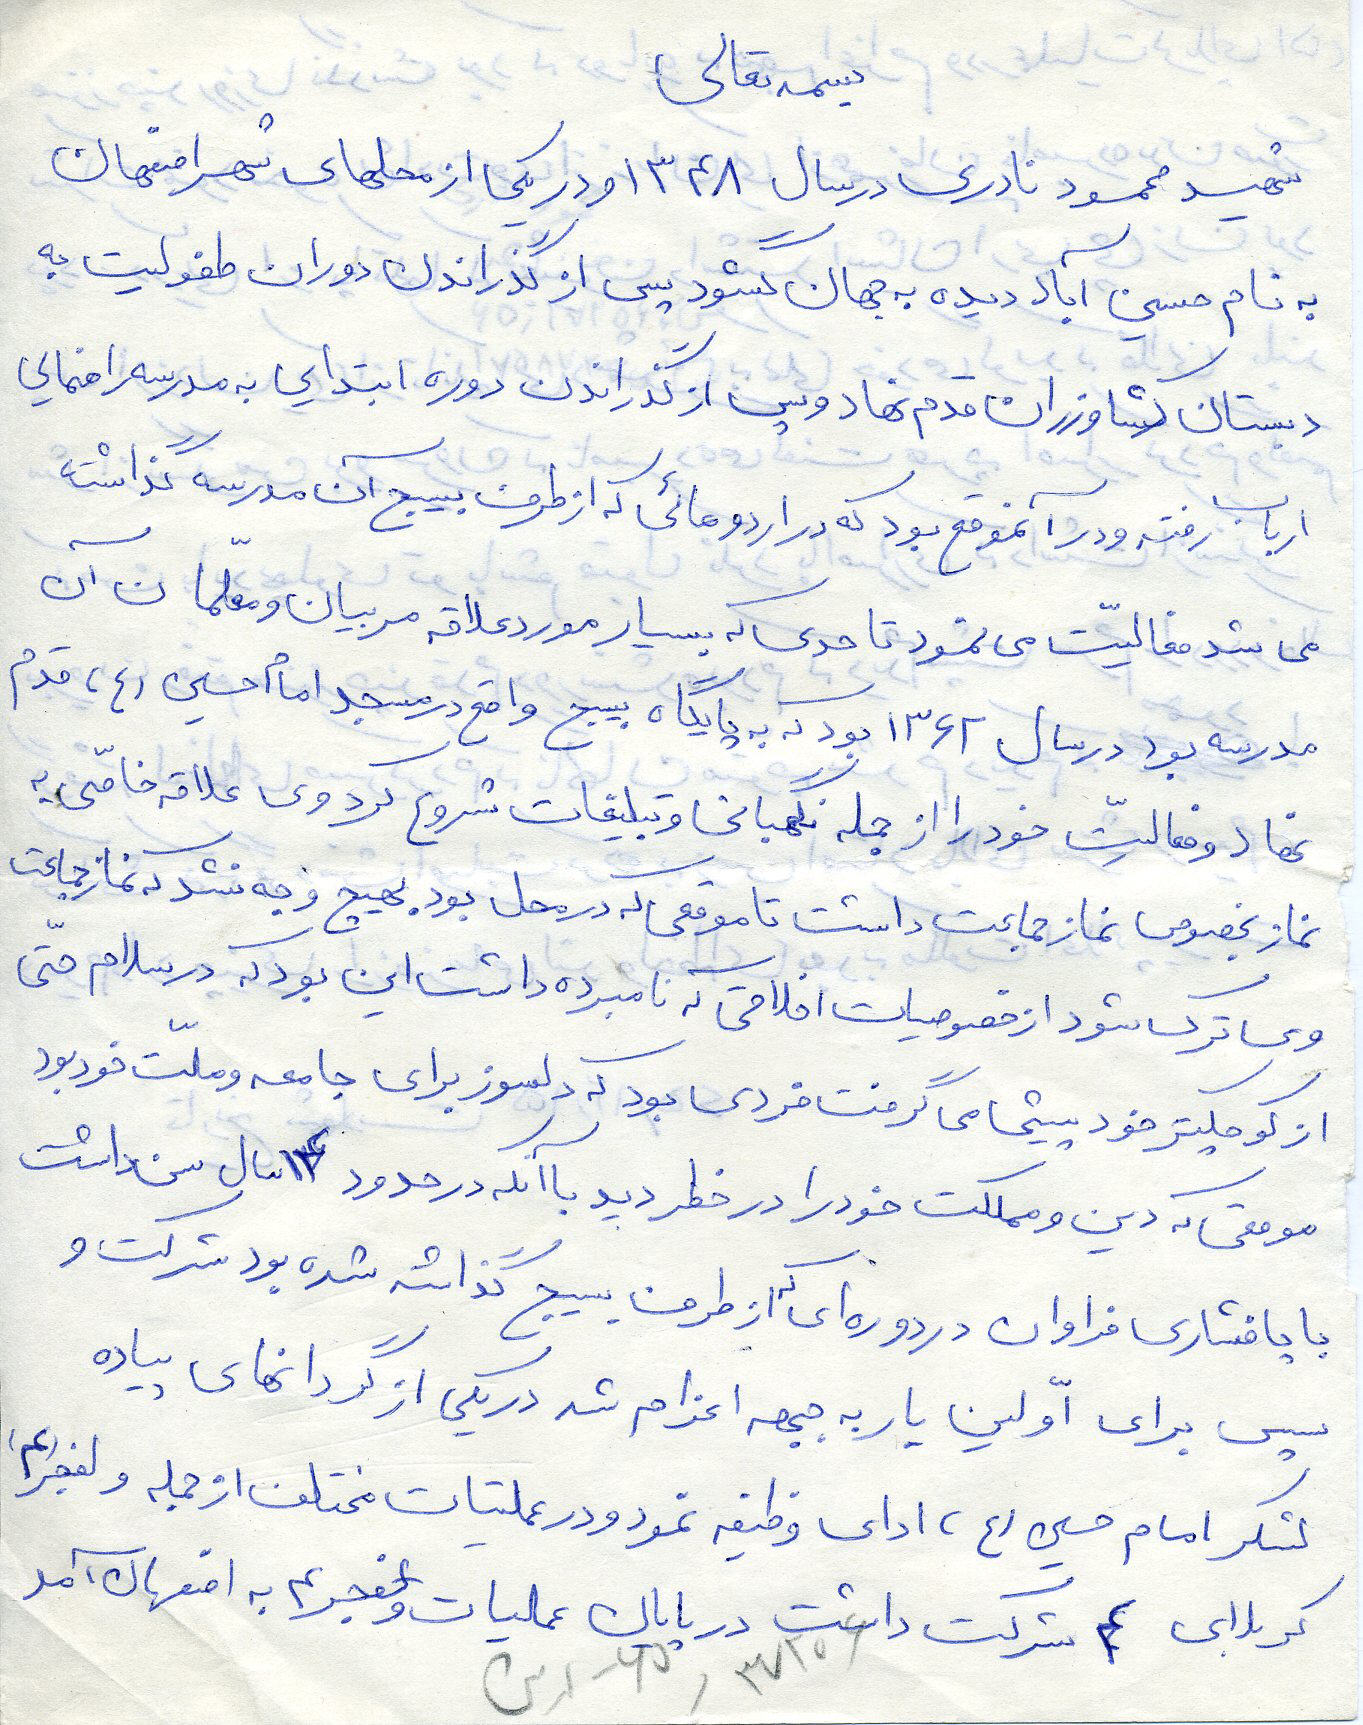 بسمه تعالی
شهید محمود نادری در سال ۱۳۴۸ و در یکی از محلهای شهر اصفهان
به نام حسین آباد دیده به جهان گشود پس از گذراندن دوران طفولیت به
دبستان کشاورزان قدم نهاد و پس از گذراندن دوره ابتدایی به مدرسه راهنمایی
ارباب رفته و در آنموقع بود که در اردوهائی که از طرف بسیج آن مدرسه گذاشته
می شد فعالیّت می نمود تا حدی که بسیار مورد علاقه مربیان و معلّمان آن
مدرسه بود در سال ۱۳۶۲ بود که به پایگاه بسیج واقع در مسجد امام حسین (ع) قدم
نهاد و فعالیّت خود را از جمله نگهبانی و تبلیغات شروع کرد وی علاقه خاصّی به
نماز بخصوص نماز جماعت داشت تا موقعی که در محل بود بهیچ وجه نشد که نماز جماعت
وی ترک شود از خصوصیات اخلاقی که نامبرده داشت این بود که در سلام حتّی
از کوچکتر خود پیشی می گرفت فردی بود که دلسوز برای جامعه و ملّت خود بود
موقعی که دین و مملکت خود را در خطر دید با آنکه در حدود ۱۴ سال سن داشت
با پافشاری فراوان در دوره ای که از طرف بسیج گذاشته شده بود شرکت و
سپس برای اوّلین بار به جبهه اعزام شد در یکی از گردانهای پیاده
لشکر امام حسین (ع) ادای وظیفه نمود و در عملیات مختلف از جمله والفجر (۴)
کربلای ۴ شرکت داشت در پایان عملیات والفجر ۴ به اصفهان آمد